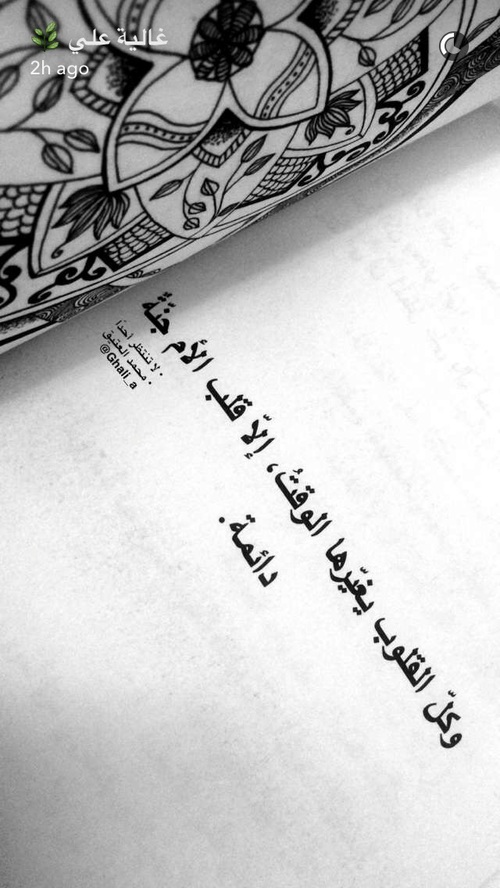 غالية علي
2h ago
وكلّ القلوب يغيّرها الوقتُ، إلّا قلب الأم جنّة
دائمة.
• لا تنتظر أحدًا
• محمد العتيق
@Ghali_a